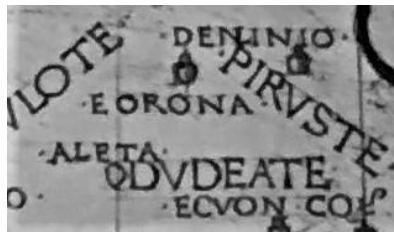 VLOTE
·DENINIO·
PIRVSTE
·EORONA·
·ALETA·
ODVDEATE
·ECVON·COE